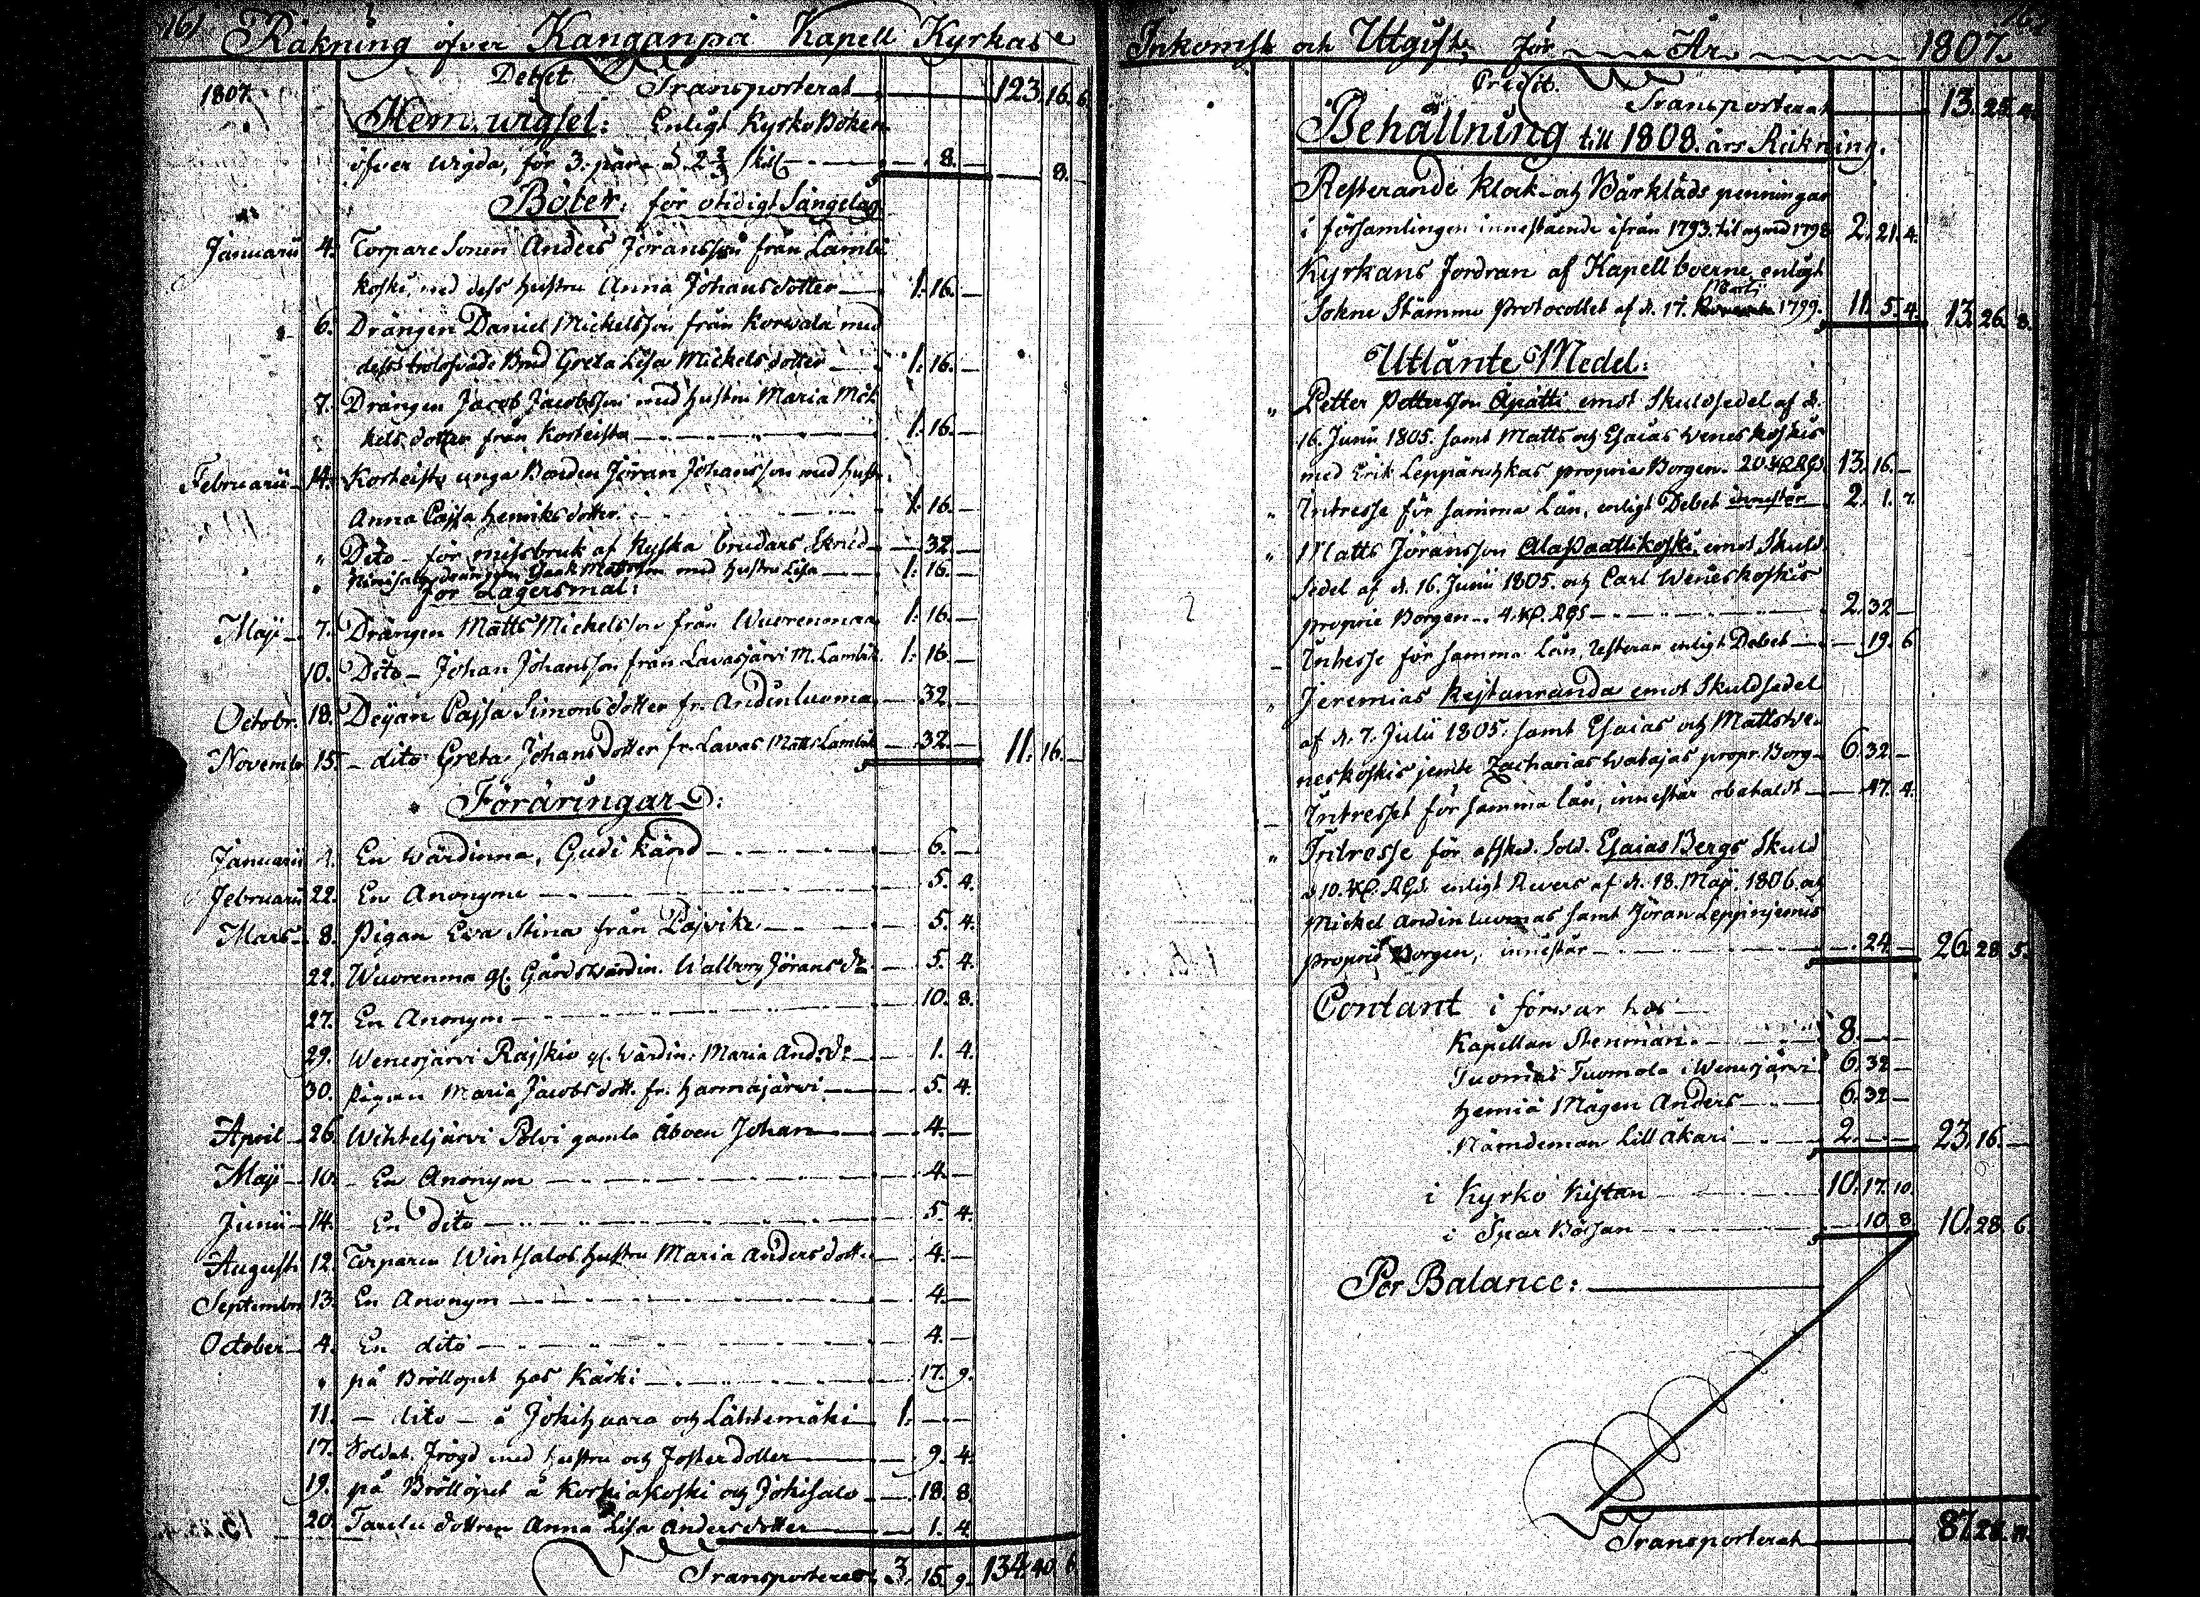 161
Räkning öfver Kanganpä Kapell Kyrkas
1807. Debet Transporterat 123. 16. 6.
Hem wigsel: Enligt Kyrko Boken
öfver wigda, för 3. par a 2 2/3 skil 8. 8.
Böter: för otidigt Sängelag
Januarii 4. Torpare Sonen Anders Jöransson från Lambi
koski, med dess hustru Anna Johansdotter 1. 16.
6. Drängen Daniel Mickelsson från Korwala med
dess trolofvade Brud Greta Lisa Mickelsdotter 1. 16.
7. Drängen Jacob Jacobsson med hustru Maria Mic
kels dotter från Korteista 1. 16.
Februarii 14. Korteisto unga Bonden Jöran Johansson med hust.
Anna Cajsa Henriksdotter. 1. 16.
" Dito för missbruk af Kyrko brudars skrud 32.
" drängen Isaak Mattsson med hustru Lisa 1. 16.
för Lägersmål:
Maji 7. Drängen Matts Mickelsson från Wuorenmaa 1. 16.
10. Dito Johan Johansson från Lavasjärvi M. Lambik. 1. 16.
Octobr. 18. Deijan Cajsa Simonsdotter fr. Andinluoma 32.
Novembr 15. dito Greta Johansdotter fr. Lavas Matts Lambik 32. 11. 16.
Föräringar:
Januarii 4. En wärdinna, Gudi känd 6.
Februarii 22. En Anonyme 5. 4.
Mars 8. Pigan Eva Stina från Pajvike 5. 4.
22. Wuorenma gl. Gårdswärdin. Walborg Jörans dr 5. 4.
27. En Anonym 10. 8.
29. Wenesjärvi Rajskio gl. wärdin: Maria Ands dr 1. 4.
30. Pigan Maria Jacobsdott. fr. Harmajärvi 5. 4.
April 26. Wihteljärvi Polvi gamla Åboen Johan 4.
Maji 10. En Anonym 4.
Junii 14. En dito 5. 4.
Augusti 12. Torparen Wintsalos hustru Maria Andersdotter 4.
Septembr 13. En Anonym 4.
October 4. En dito 4.
" på Bröllopet hos Käski 17. 9.
11. dito å Jokihaara och Lähtemäki 1.
17. Soldat. Frögd med hustru och Fosterdotter 9. 4.
19. på Bröllopet å Korkiakoski och Jokisalo 18. 8.
20. dottren Anna Lisa Andersdotter 1. 4.
Transporteres 3. 15. 9. 134. 40. 6.
Inkomst och Utgift för År 1807.
Credit.
Transporterat 13. 25. 4.
Behållning till 1808. års Räkning.
Resterande Klock och Bårkläds penningar
i församlingen innestående ifrån 1793. til och med 1798 2. 21. 4.
Kyrkans fordran af Kapellboerne, enligt
Martii
Sokne Stämmo Protocollet af d. 17. 1799. 11. 5. 4. 13. 26. 8.
Utlånte Medel:
" Petter Pettersson Äpätti emot Skuldsedel af d.
16. Junii 1805. samt Matts och Esaias Weneskoskis
med Erik Leppänchkas proprie Borgen. 20 RD RGS 13. 16.
" Intresse för samma Lån, enligt Debet innestår 2. 1. 7.
" Matts Jöransson Alapaattikoski emot Skuld
sedel af d. 16. Junii 1805. och Carl Weneskoskis
proprie Borgen. 4. RD. RGS 2. 32
Intresse för samma Lån, resterar enligt Debet 19. 6
" Jeremias Kejtanranda emot Skuldsedel
af d. 7. Julii 1805. samt Esaias och Matts We
neskoskis jemte Zacharias Watajas propr. Borg. 6. 32
Intresset för samma lån, innestår obetaldt 47. 4.
" Intresse för afsked. Sold. Esaias Bergs Skuld
a 10. RD. RGS. enligt Revers af d. 18. Maji 1806. och
Mickel Andinluomas samt Jöran Leppinjemis
proprie Borgen, innestår 24 26. 28. 5.
Contant i förwar hos
Kapellan Stenman 8.
Tuomas Tuomola i Wenesjärvi 6. 32
Hemiä Mägen Anders 6. 32
Nämdeman Lill Akari 2. 23. 16.
i Kyrko Kistan 10. 17. 10
i Spar Bössan 10. 8 10. 28. 6.
Per Balance:
Transporterat 87. 28. 11.